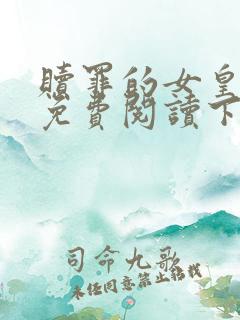 贖罪的女皇
免費閱讀下
司命九歌
未經同意禁止轉載